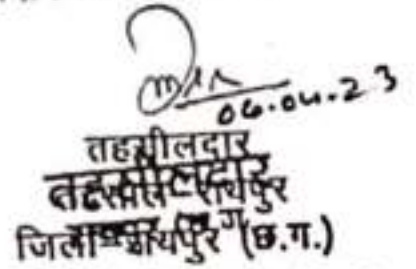 06.04.23
तहसीलदार
तहसीलदार
रायपुर
जिला रायपुर (छ.ग.)